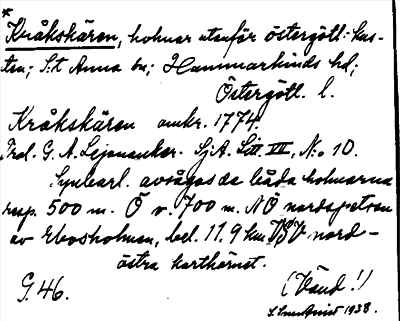 *
Kråkskären, holmar utanför östergötl. kus-
ten; S:t Anna sn; Hammarkinds hd;
Östergötl. l.
Kråkskären omkr. 1774.
Prol. G. A. Lejonanker. SjA. Litt. VII, No 10.
Synbarl. avsågos de båda holmarna
resp. 500 m. Ö v. 700 m. NÖ nordspetsen
av Ebosholmen, bel. 11.9 km VSV nord-
östra karthörnet.
G. 46.
(Vänd!)
1938.